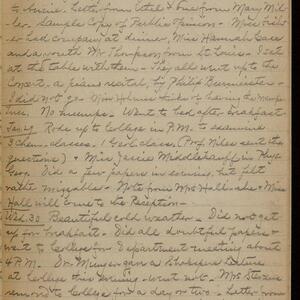 to Susie. Letter from Ethel & one from Mary Mil-
ler. Sample Copy of Public Opinion. Miss
had company at dinner, Miss Hannah
and a Mr. Thompson from St. Louis. I sat
at the table with them. They all went up to the
Concert, a piano recital, by Philip
I did not go. Miss thinks of having the mumps
too. No mumps. Went to bed after breakfast
Rode up to College in P.M. to examine
3 Chem. classes. 1 Geol. class (Prof. Niles sent the
questions) & Miss Jessie in Phys.
Geog. Did a few papers in evening, but felt
rather miserable. Note from Mrs Hall & Miss
Hall will come to the Reception
Wed. 30 Beautiful cold weather. Did not get
up for breakfast. Did all doubtful papers &
went to College for Department meeting about
4 P.M. Dr. gave a Shakspere Lecture
at College this evening. Went not. Mrs
removed to College for a day or two. Letter from